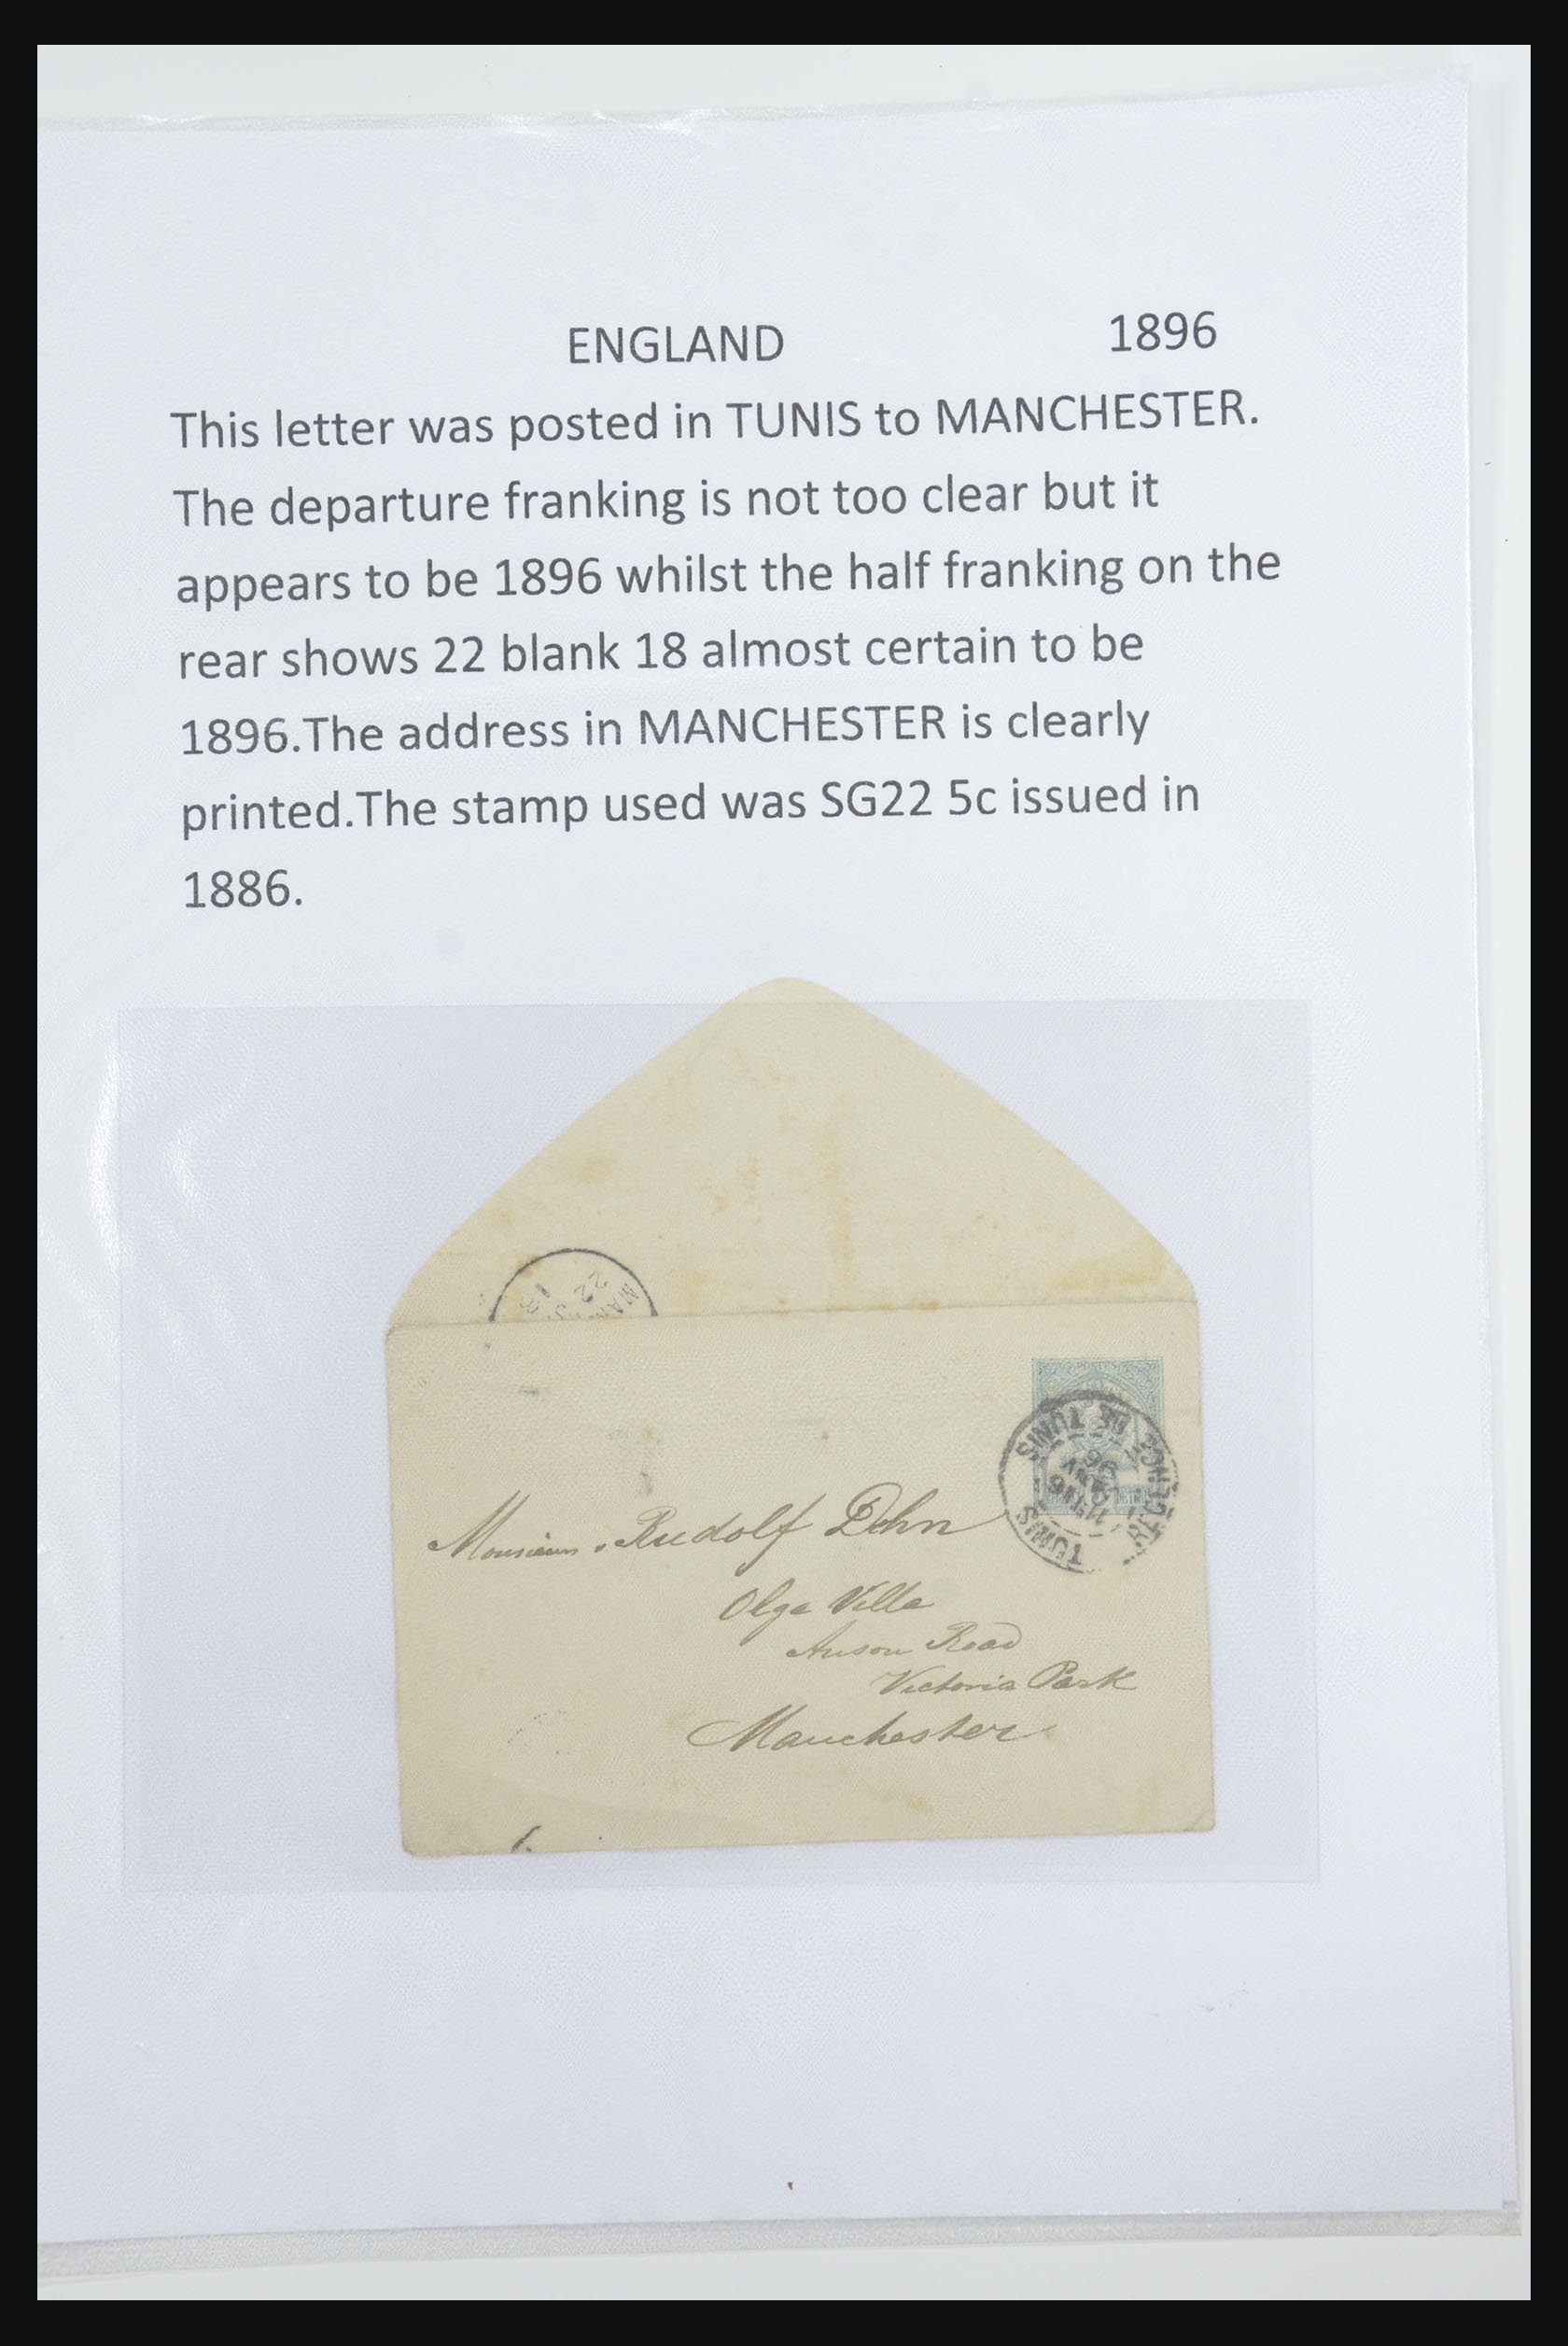 ENGLAND 1896
This letter was posted in TUNIS to MANCHESTER.
The departure franking is not too clear but it
appears to be 1896 whilst the half franking on the
rear shows 22 blank 18 almost certain to be
1896.The address in MANCHESTER is clearly
printed.The stamp used was SG22 5c issued in
1886.
22
18
POSTES
TUNIS
96
TUNIS
Rudolf Dehn
Olga Villa
Anson Road
Victoria Park
Manchester